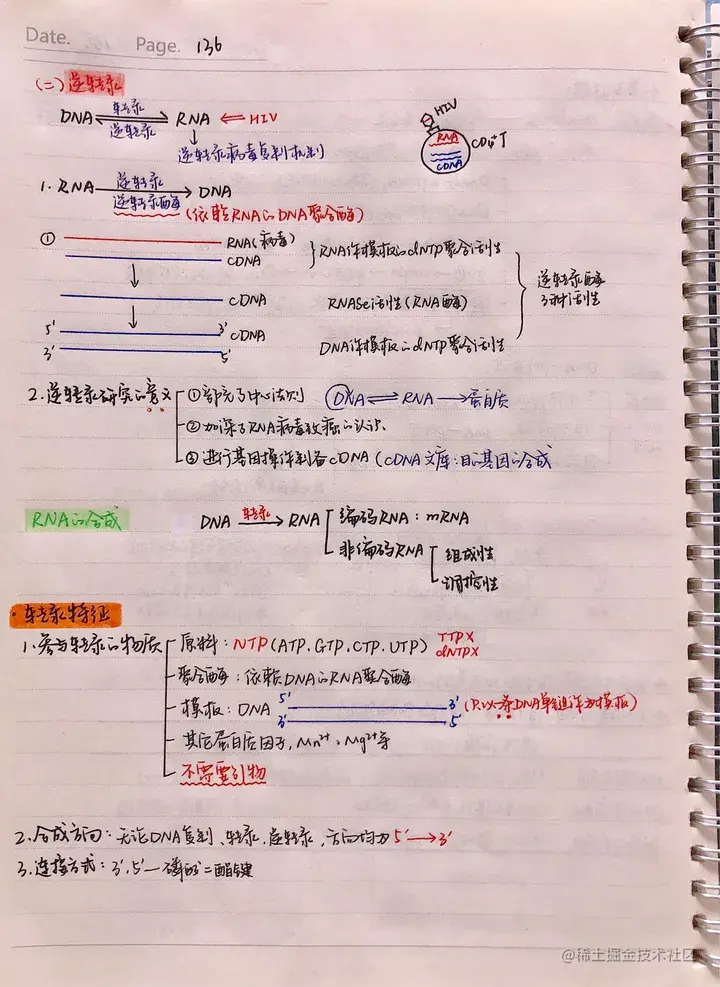 Date. Page. 136
(二) 逆转录
DNA 转录 逆转录 RNA ⇐ HIV
逆转录病毒复制机制
HIV
RNA
cDNA
CD4+T
1. RNA 逆转录 逆转录酶 → DNA
(依赖RNA的DNA聚合酶)
① RNA(病毒)
cDNA
RNA作模板的dNTP聚合活性
cDNA
RNASe活性(RNA酶)
5' 3' cDNA
3' 5'
DNA作模板的dNTP聚合活性
逆转录酶
3种活性
2. 逆转录研究的意义
①补充了中心法则 DNA ⇌ RNA → 蛋白质
②加深了RNA病毒致癌的认识.
③进行基因操作制备cDNA (cDNA文库:目的基因的合成
RNA的合成
DNA 转录 → RNA
编码RNA: mRNA
非编码RNA
组成性
调控性
·转录特征
1. 参与转录的物质
原料: NTP (ATP.GTP.CTP.UTP) TTP×
dNTP×
聚合酶: 依赖DNA的RNA聚合酶
模板: DNA 5' 3' (只以一条DNA单链作为模板)
3' 5'
其他蛋白质因子, Mn²⁺、Mg²⁺等
不需要引物
2. 合成方向: 无论DNA复制、转录.逆转录, 方向均为 5'→3'
3. 连接方式: 3',5'—磷酸二酯键
@稀土掘金技术社区